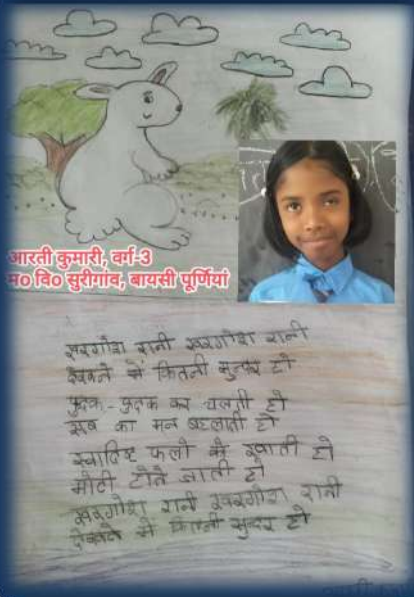 आरती कुमारी, वर्ग-3
म० वि० सुरीगांव, बायसी पूर्णियां
खरगोश रानी खरगोश रानी
देखने में कितनी सुन्दर हो
फुदक - फुदक कर चलती हो
सब का मन बहलाती हो
स्वादिष्ट फलो को खाती हो
मोटी होते जाती हो
खरगोश रानी खरगोश रानी
देखने में कितनी सुन्दर हो